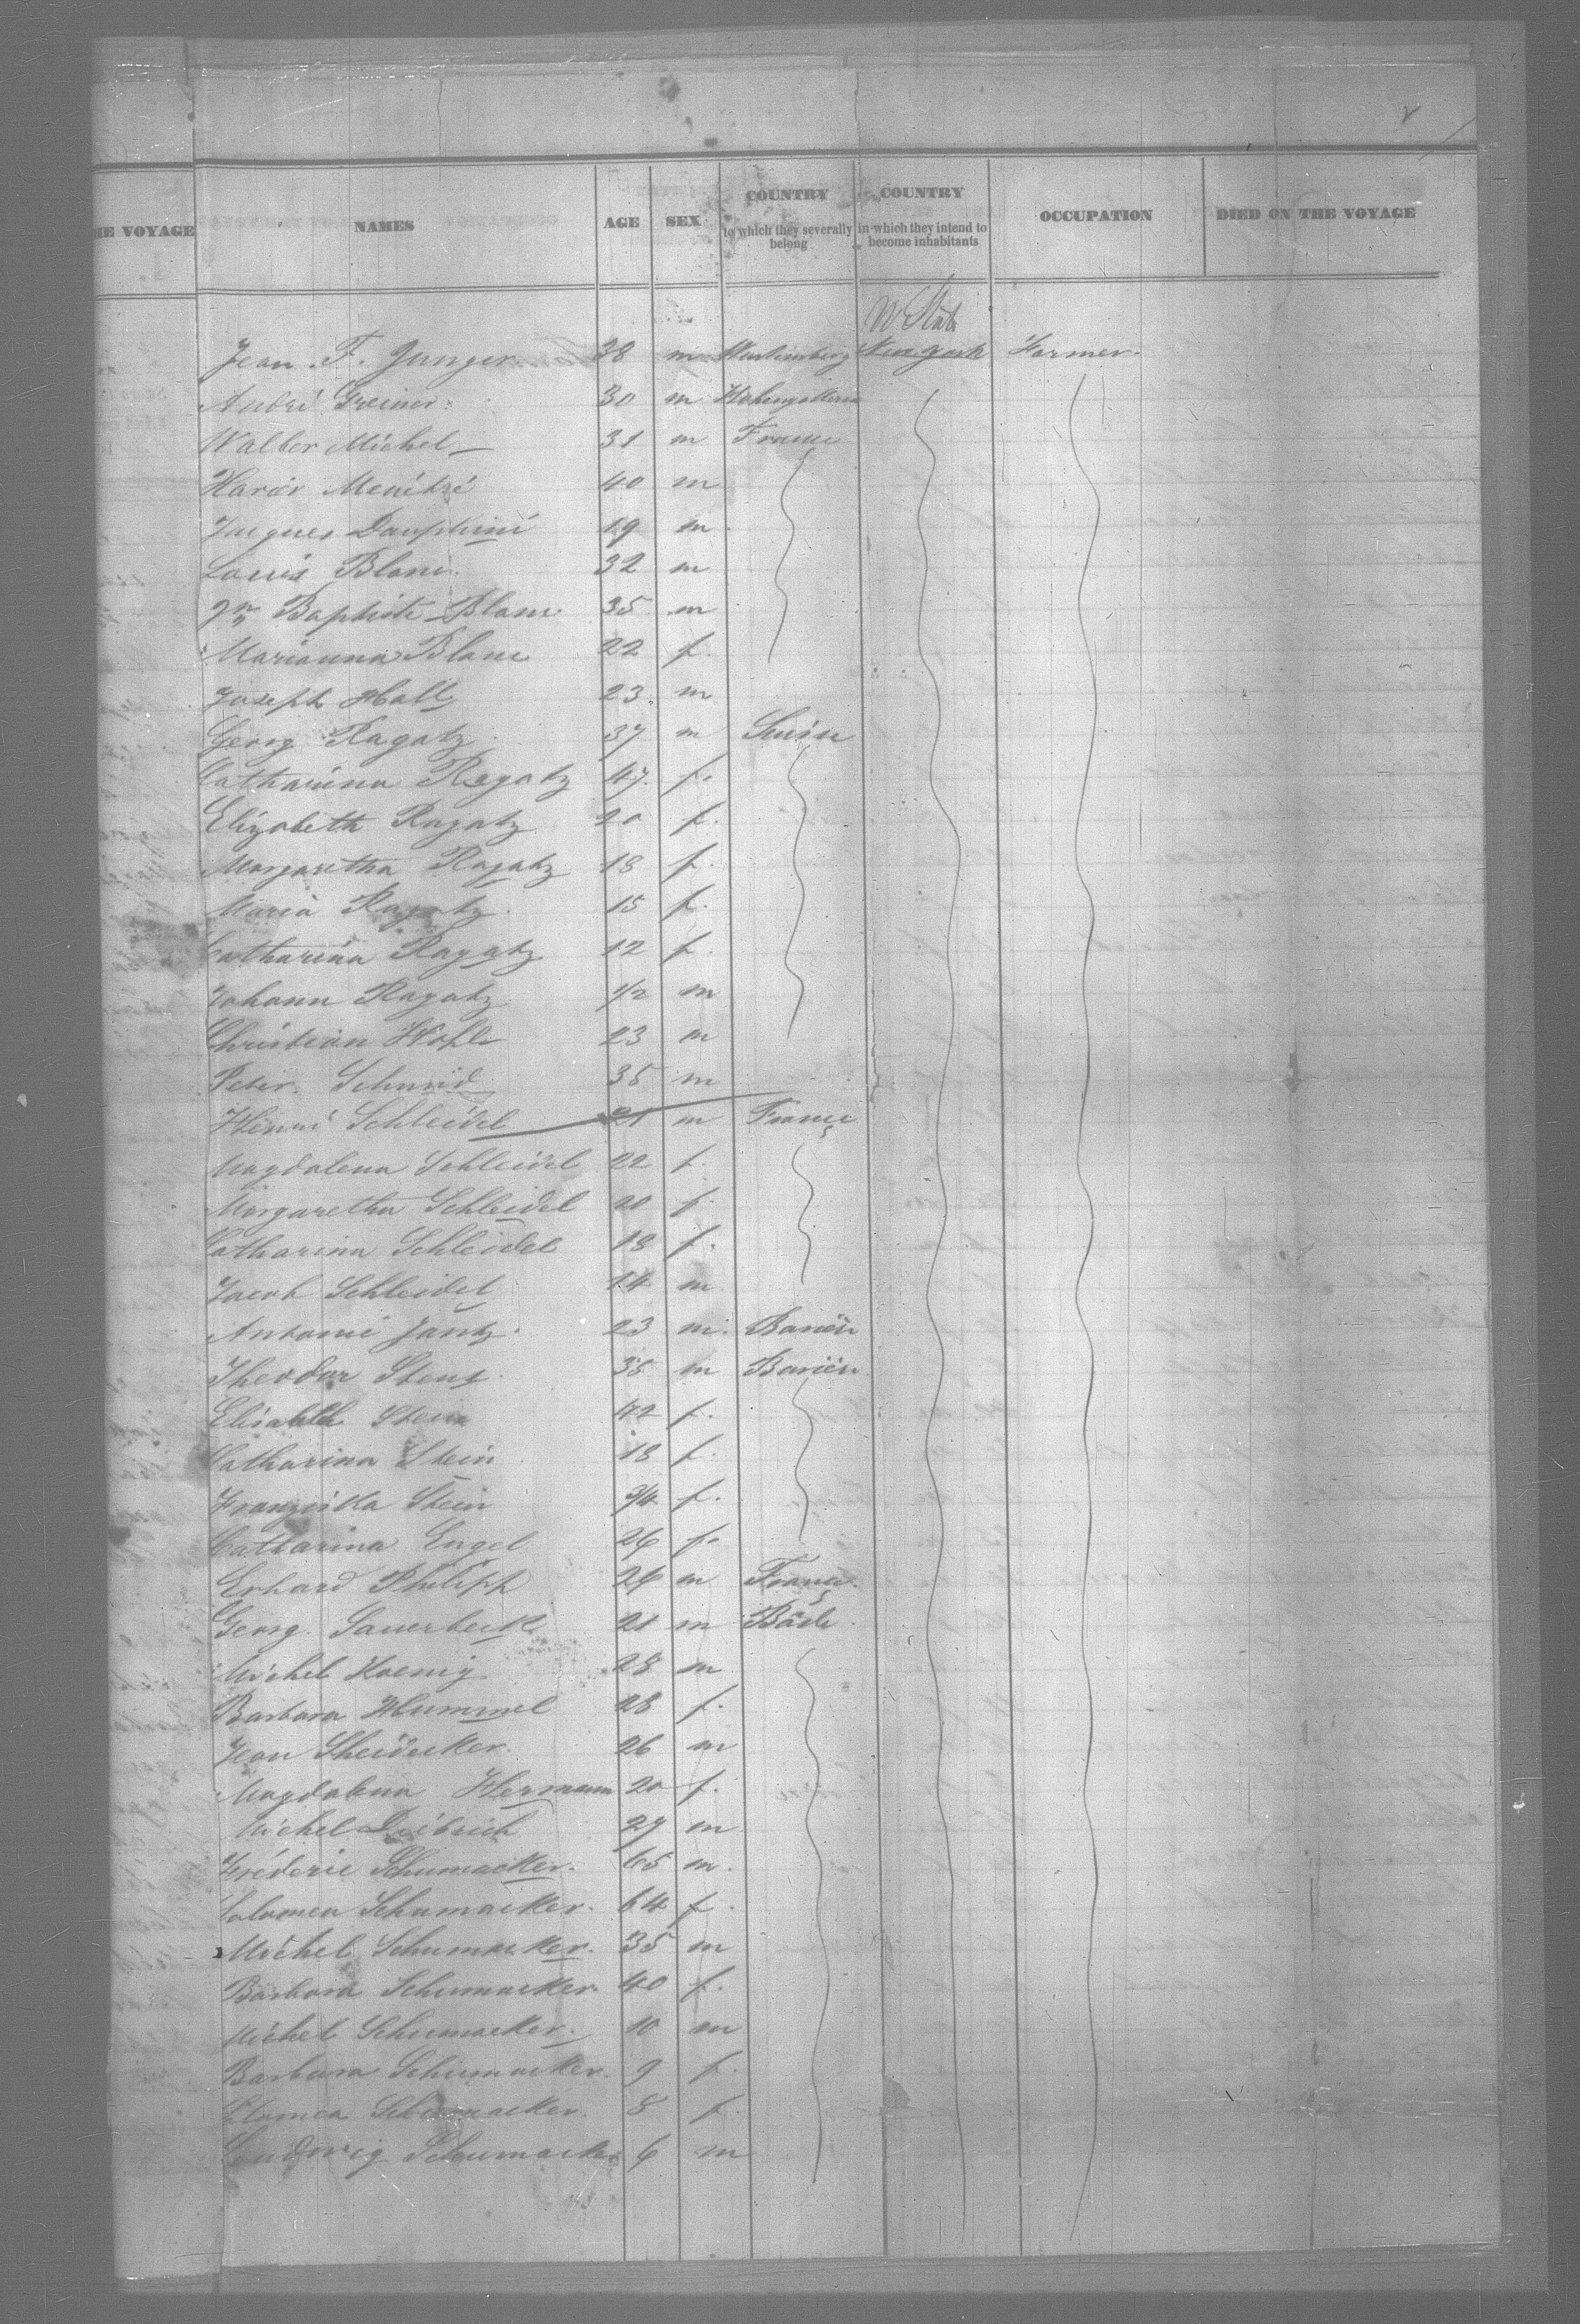 HE VOYAGE NAMES AGE SEX COUNTRY to which they severally belong COUNTRY in which they intend to become inhabitants OCCUPATION DIED ON THE VOYAGE
Jean F. Junger 38 m Wurtemberg New York Farmer
André Greiner 30 m
Walter Michel 31 m France
40 m
Jacques Dauphiné 19 m
Louis Blanc 32 m
Jn Baptiste Blanc 35 m
Marianna Blanc 22 f.
Joseph Hall 23 m
Georg Ragatz 37 m Suisse
Catharina Ragatz 47 f.
Elizabeth Ragatz 20 f.
Margaretha Ragatz 18 f.
Maria Ragatz 15 f.
Catharina Ragatz 12 f.
Johann Ragatz 1/2 m
Christian 23 m
Peter Schmid 35 m
Henri Schleidel 21 m France
Magdalena Schleidel 22 f.
Margaretha Schleidel 20 f.
Catharina Schleidel 18 f.
Jacob Schleidel 14 m
Antoine Jantz 23 m
Theodor 35 m
Elisabeth Stein 42 f.
Catharina Stein 18 f.
Franziska Stein 3/4 f.
Catharina Engel 26 f.
Erhard Philipp 26 m France
Georg Sauerbeck 21 m Bade
Michel Koenig 28 m
Barbara Hummel 28 f.
Jean Sheidecker 26 m
Magdalena Hermann 20 f.
Michel 27 m
Fréderic Schumacker 65 m.
Salomea Schumacker 64 f.
Michel Schumacker. 35 m
Barbara Schumacker 40 f.
Michel Schumacker. 10 m
Barbara Schumacker. 9 f.
Schumacker 8 f.
Ludwig Schumacker 6 m